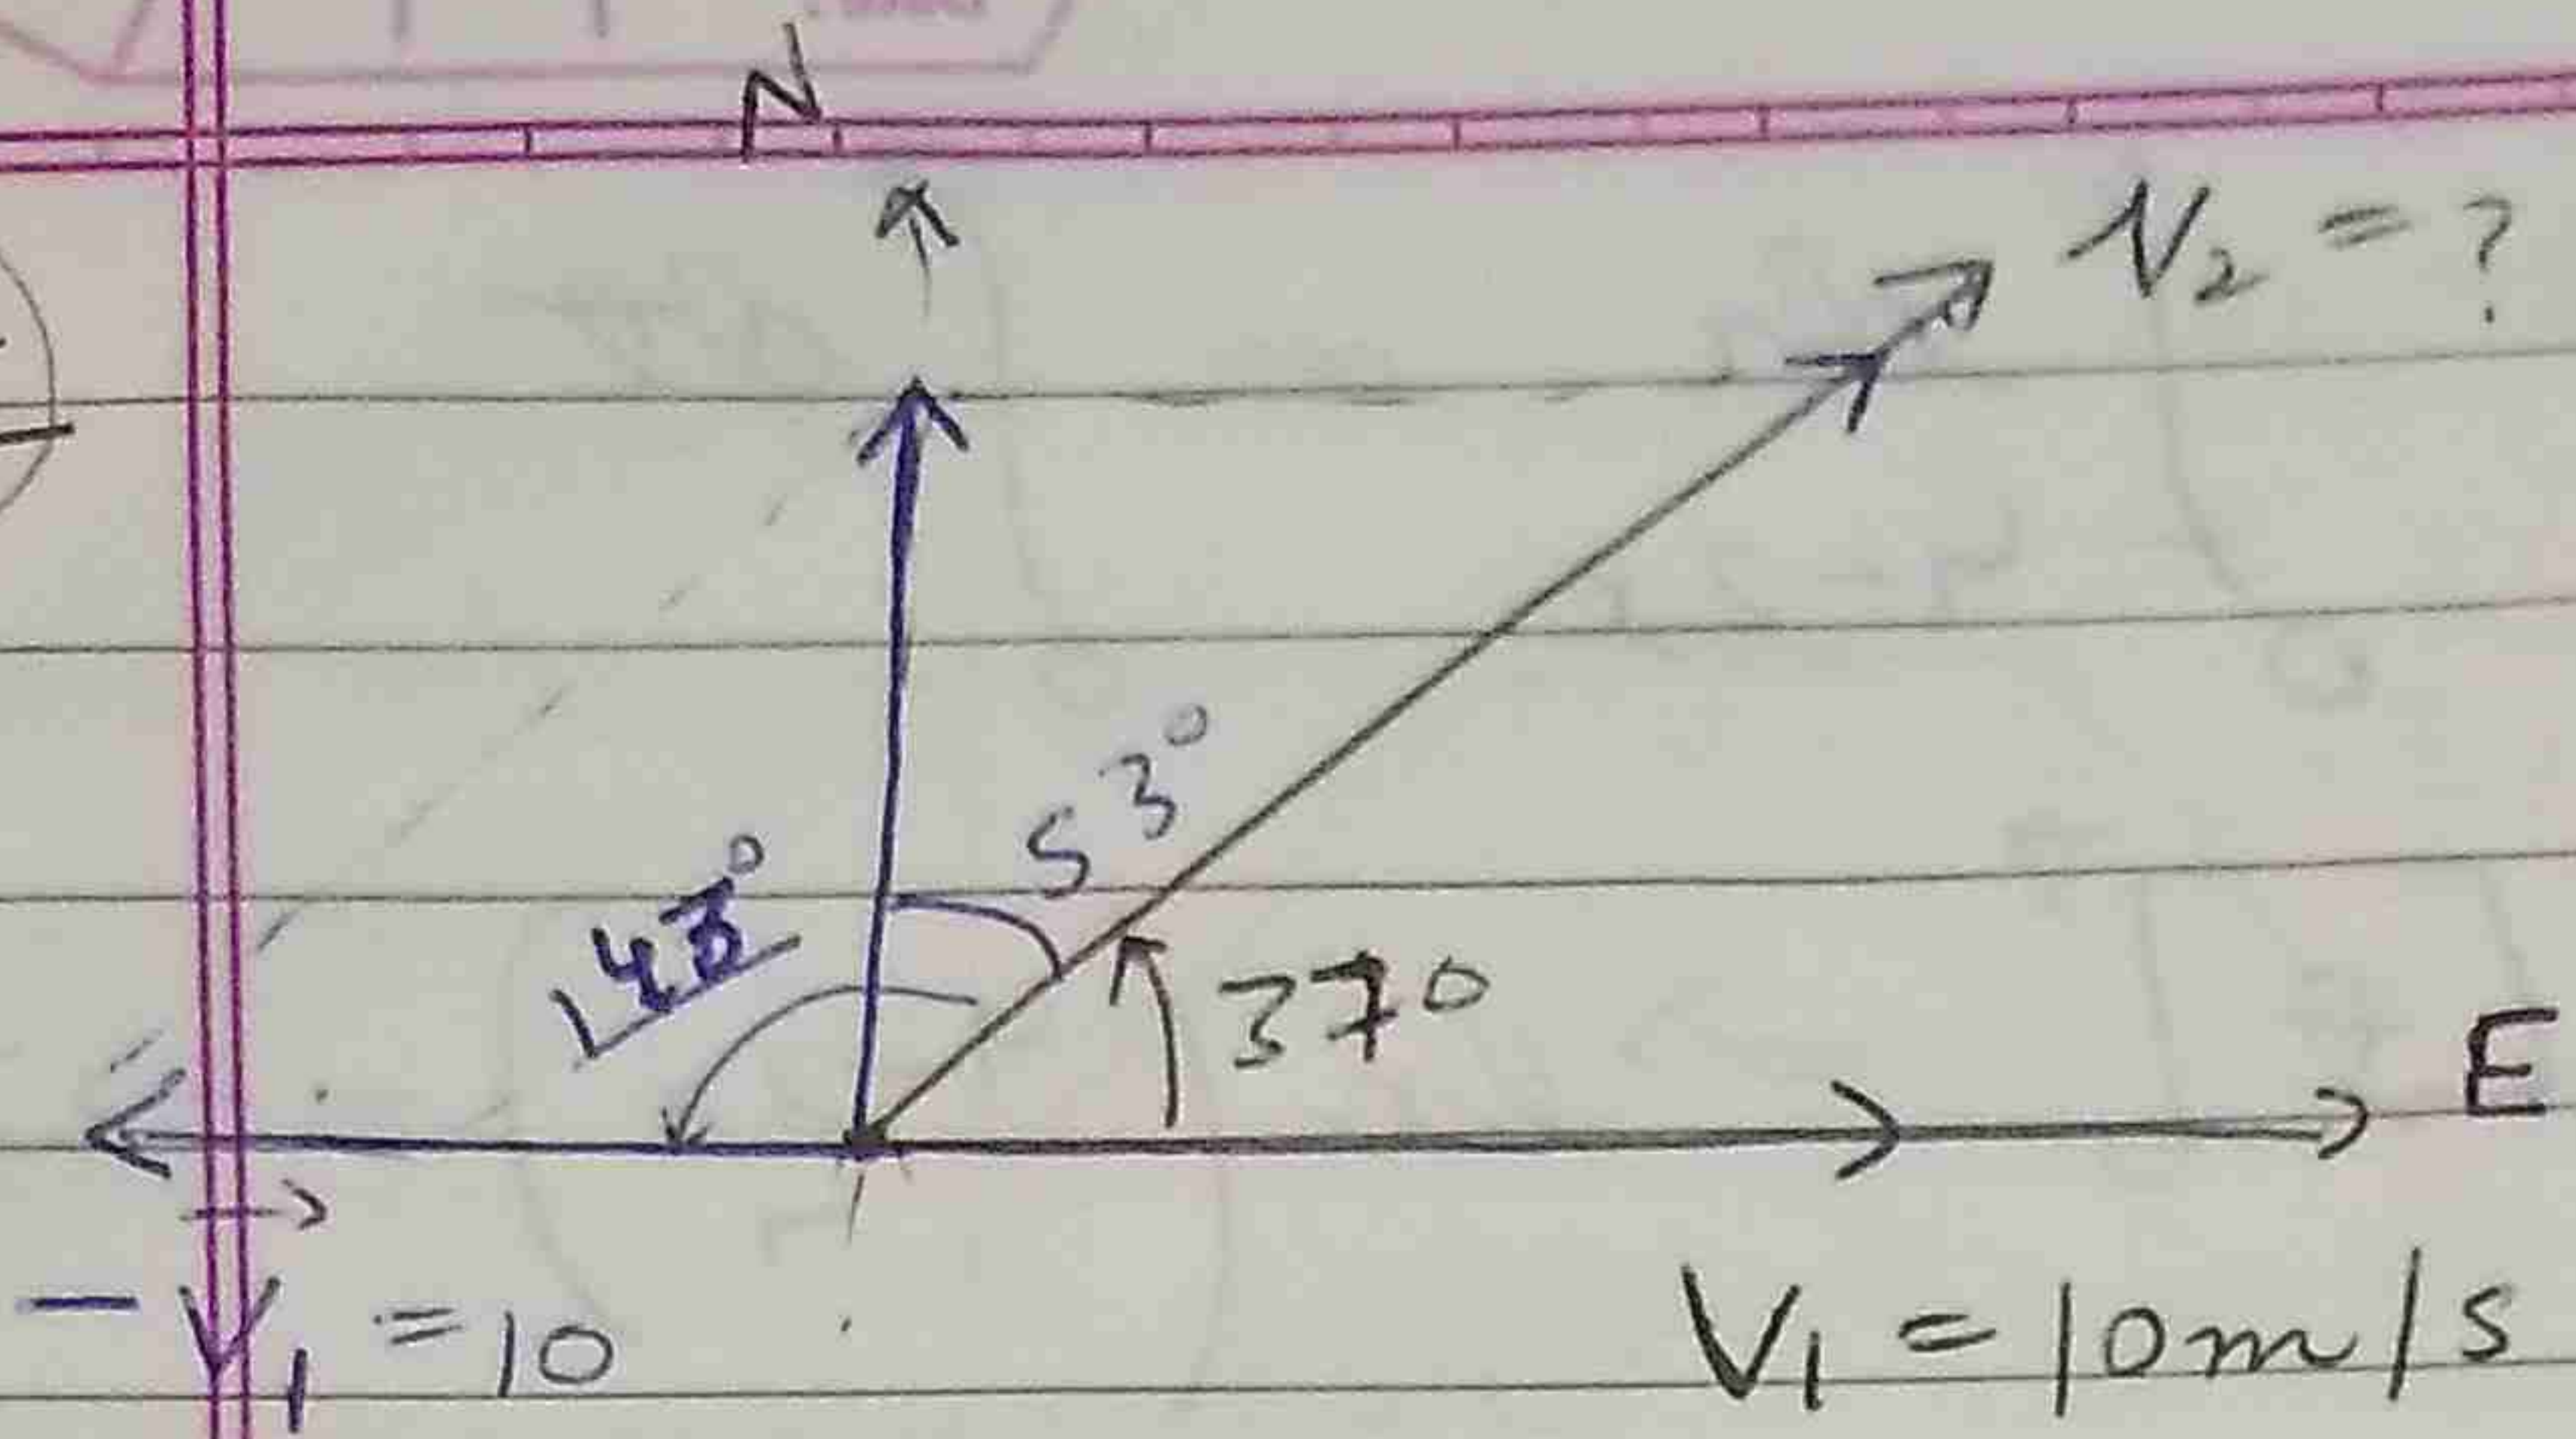 N
V₂ = ?
53°
37°
E
- V₁ = 10
V₁ = 10m/s